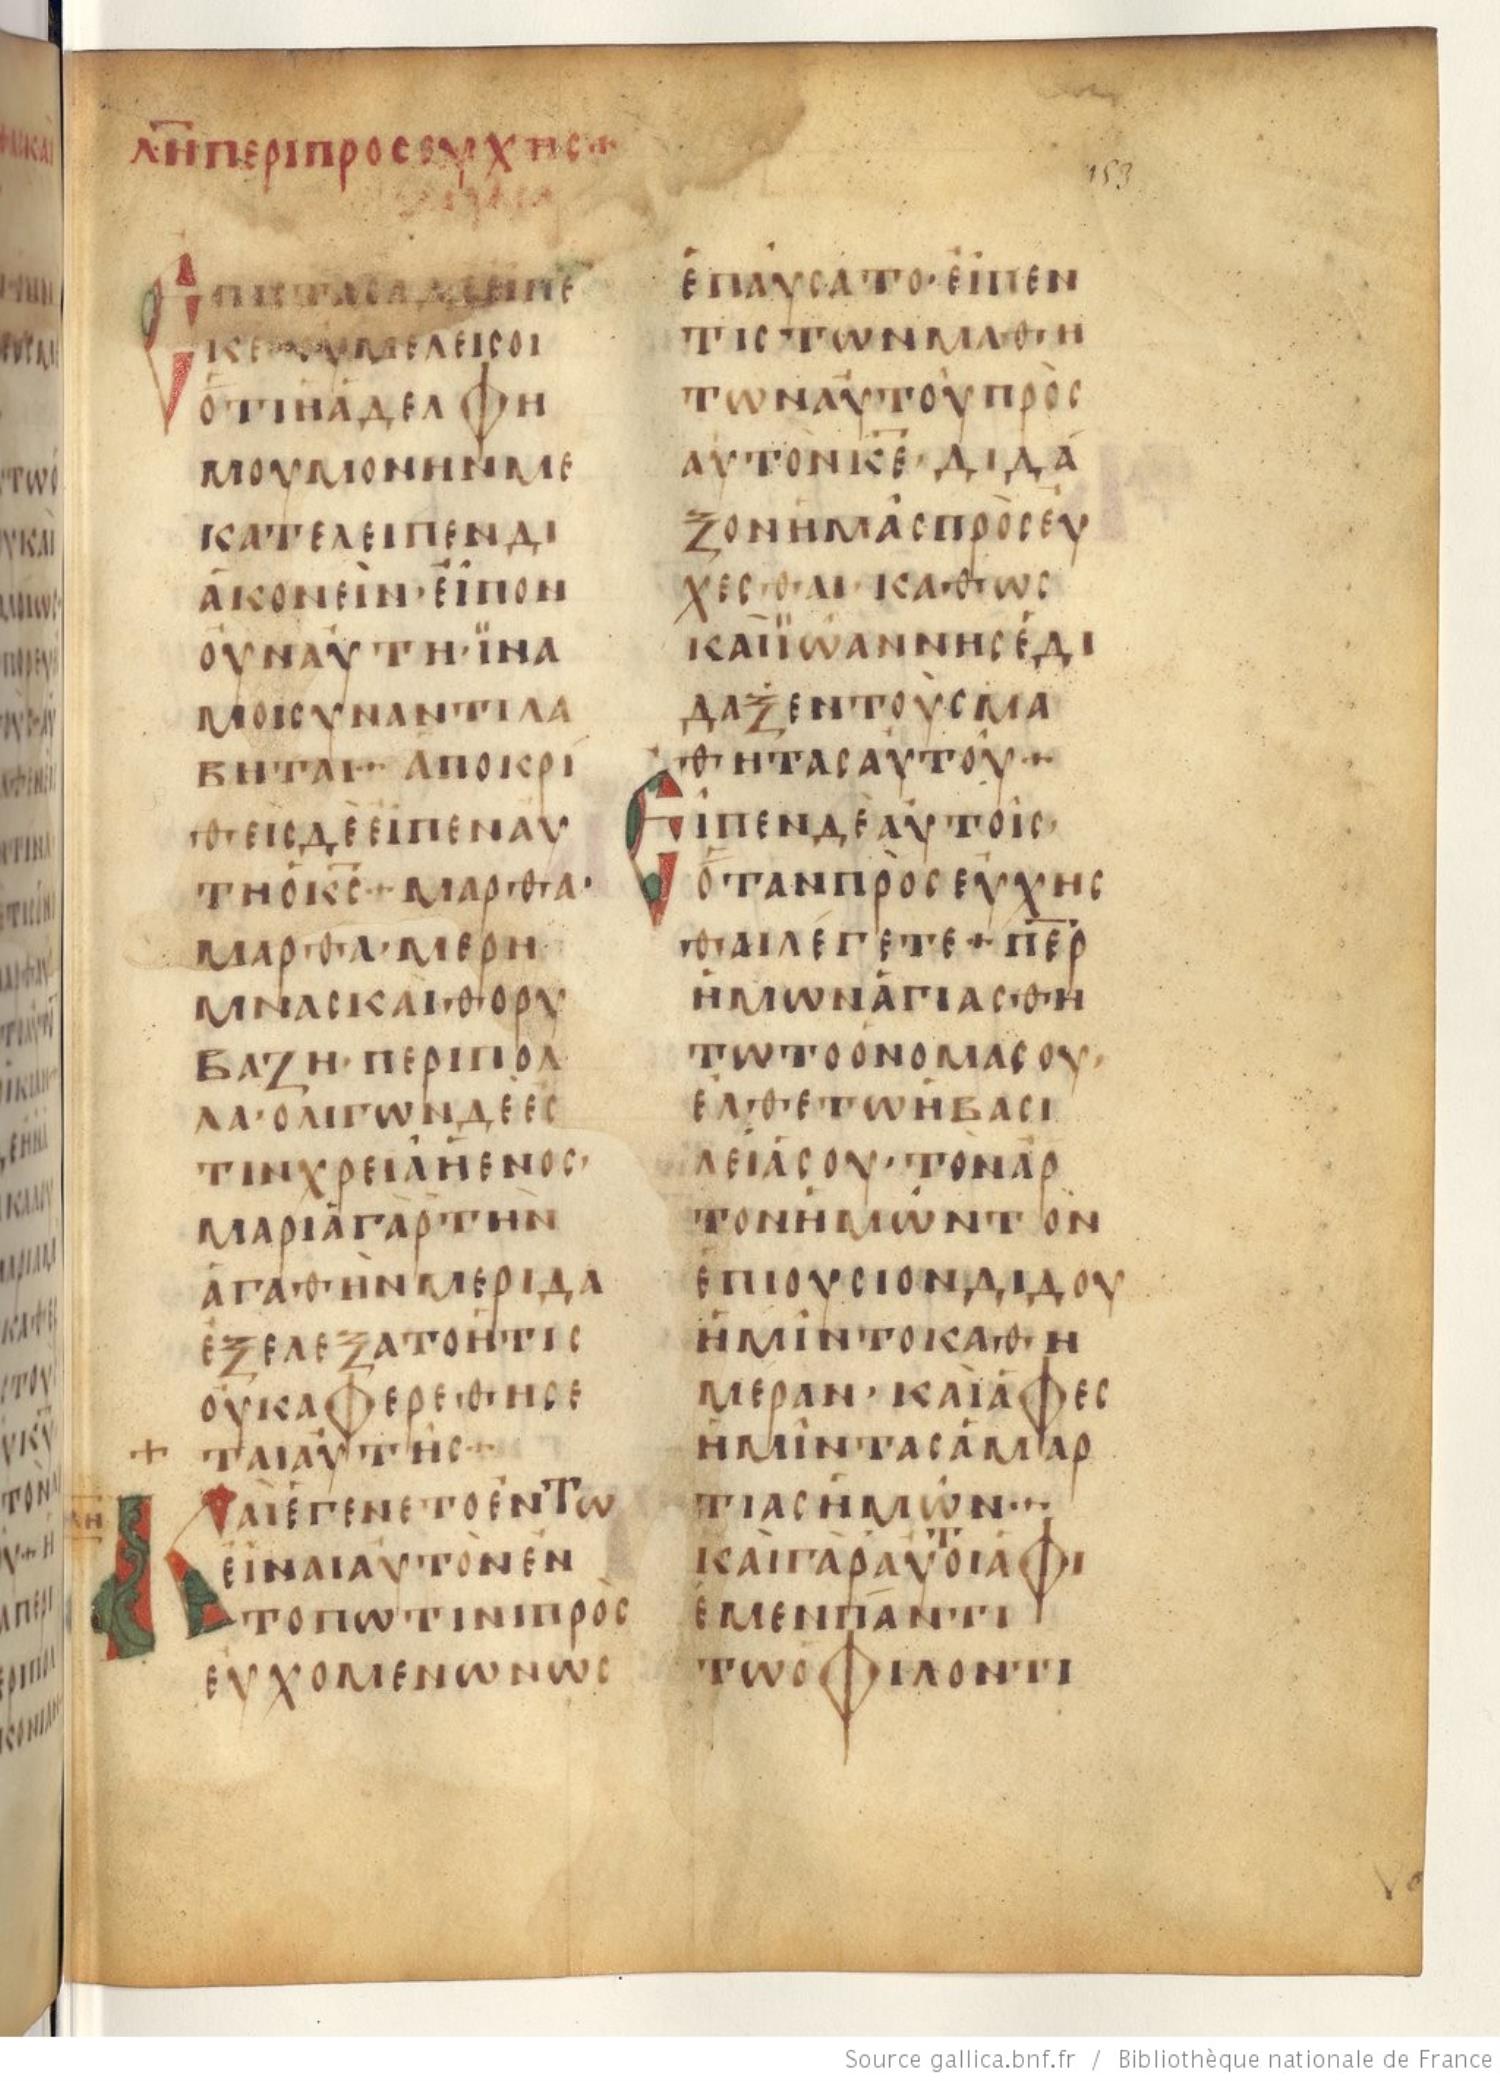 ΛΗ ΠΕΡΙ ΠΡΟΣΕΥΧΗΣ
153
ΕΠΙΣΤΑΣΑΔΕΕΙΠΕ
ΚΕ ΟΥΜΕΛΕΙΣΟΙ
ὉΤΙἩἈΔΕΛΦΗ
ΜΟΥΜΟΝΗΝΜΕ
ΚΑΤΕΛΕΙΠΕΝΔΙ
ἈΚΟΝΕῙΝ·ἘΙΠΟΝ
ΟΥΝΑΥΤΗ·ΪΝΑ
ΜΟΙΣΥΝΑΝΤΙΛΑ
ΒΗΤΑΙ+ ἈΠΟΚΡΙ
ΘΕΙΣΔΕΕΙΠΕΝΑΥ
ΤΗὉΚΣ+ ΜΑΡΘΑ·
ΜΑΡΘΑ·ΜΕΡΗ
ΜΝΑΣΚΑΙΘΟΡΥ
ΒΑΖΗ·ΠΕΡΙΠΟΛ
ΛΑ·ΟΛΙΓΩΝΔΕἘΣ
ΤΙΝΧΡΕΙΑἩΕΝΟΣ·
ΜΑΡΙΑΓΑΡΤΗΝ
ἈΓΑΘΗΝΜΕΡΙΔΑ
ἘΞΕΛΕΞΑΤΟΗΤΙΣ
ΟΥΚΑΦΕΡΕΘΗΣΕ
+ ΤΑΙΑΥΤΗΣ+
ΛΗ ΚΑΙἘΓΕΝΕΤΟἘΝΤΩ
ΕΙΝΑΙΑΥΤΟΝΕΝ
ΤΟΠΩΤΙΝΙΠΡΟΣ
ΕΥΧΟΜΕΝΩΝΩΣ
ἘΠΑΥΣΑΤΟ·ἘΙΠΕΝ
ΤΙΣΤΩΝΜΑΘΗ
ΤΩΝΑΥΤΟΥΠΡΟΣ
ΑΥΤΟΝΚΕ·ΔΙΔΑ
ΞΟΝΗΜΑΣΠΡΟΣΕΥ
ΧΕΣΘΑΙ·ΚΑΘΩΣ
ΚΑΙΪΩΑΝΝΗΣἘΔΙ
ΔΑΞΕΝΤΟΥΣΜΑ
ΘΗΤΑΣΑΥΤΟΥ+
ΕΙΠΕΝΔΕΑΥΤΟΙΣ·
ὉΤΑΝΠΡΟΣΕΥΧΗΣ
ΘΑΙΛΕΓΕΤΕ+ΠΕΡ
ἩΜΩΝἉΓΙΑΣΘΗ
ΤΩΤΟΟΝΟΜΑΣΟΥ·
ΕΛΘΕΤΩἩΒΑΣΙ
ΛΕΙΑΣΟΥ·ΤΟΝΑΡ
ΤΟΝἩΜΩΝΤΟΝ
ἘΠΙΟΥΣΙΟΝΔΙΔΟΥ
ἩΜΙΝΤΟΚΑΘΗ
ΜΕΡΑΝ·ΚΑΙΑΦΕΣ
ἩΜΙΝΤΑΣἉΜΑΡ
ΤΙΑΣἩΜΩΝ+
ΚΑΙΓΑΡΑΥΤΟΙΑΦΙ
ἘΜΕΝΠΑΝΤΙ
ΤΩΟΦΙΛΟΝΤΙ
Source gallica.bnf.fr / Bibliothèque nationale de France